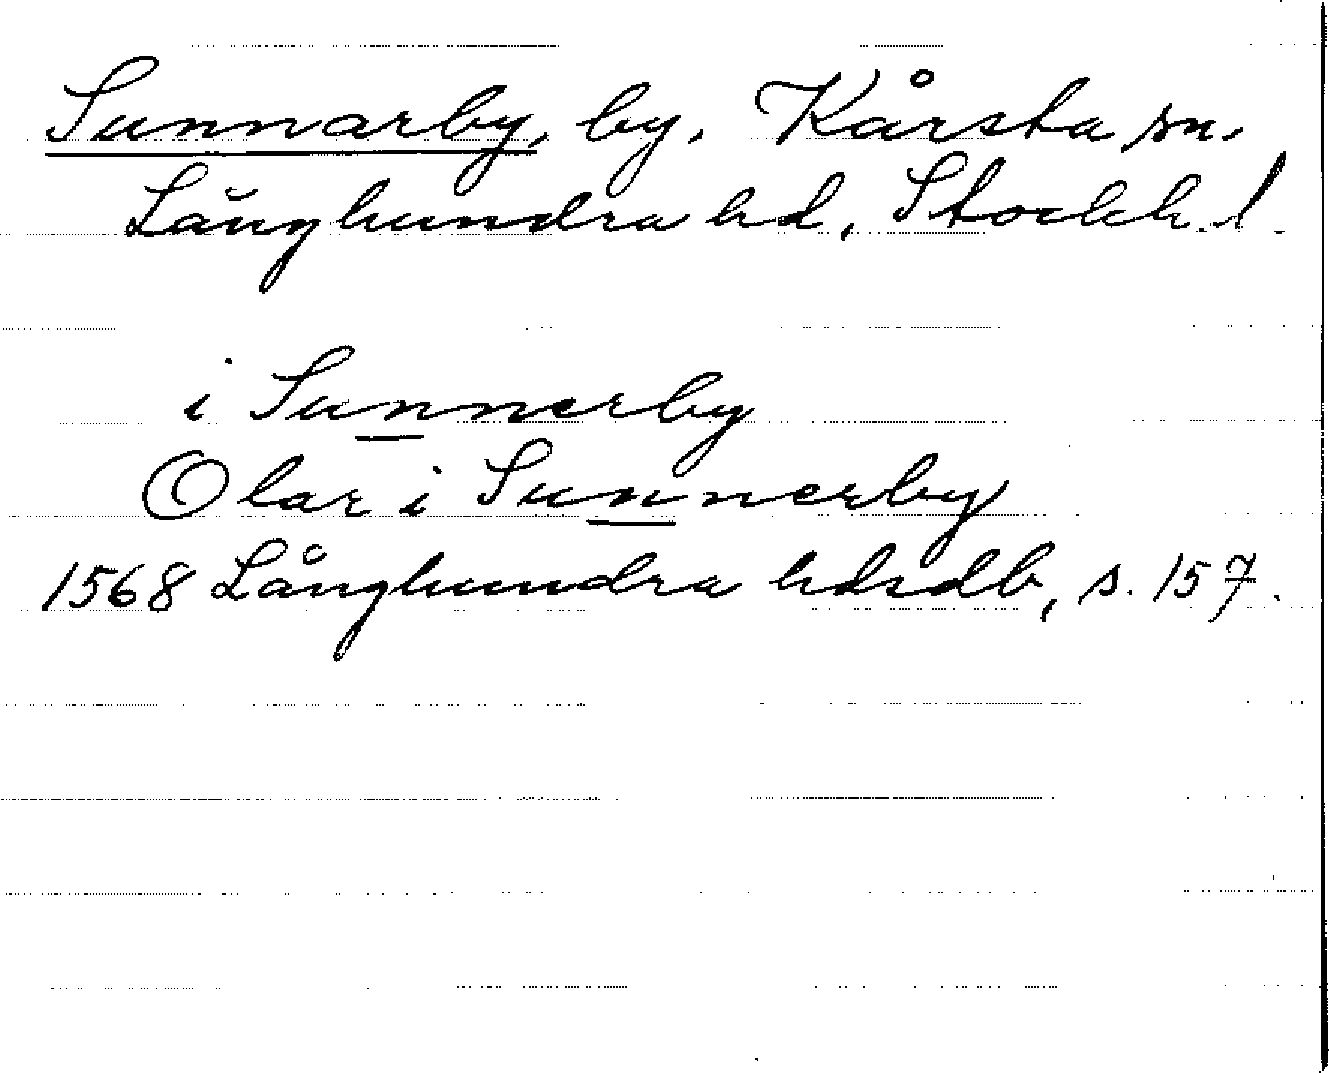 Sunnarby, by. Kårsta sn.
Långhundra hd, Stockh. l.
i Sunnerby
Olar i Sunnerby
1568 Långhundra hdsdb, s. 157.